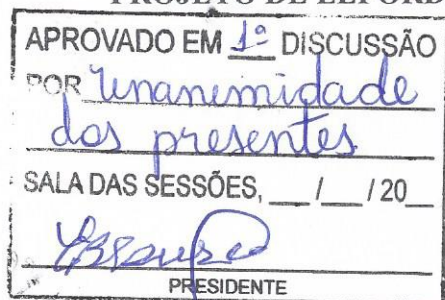 PROJETO DE LEI ORD
APROVADO EM 1ª DISCUSSÃO
POR Unanimidade
dos presentes
SALA DAS SESSÕES, ___/___/20__
PRESIDENTE